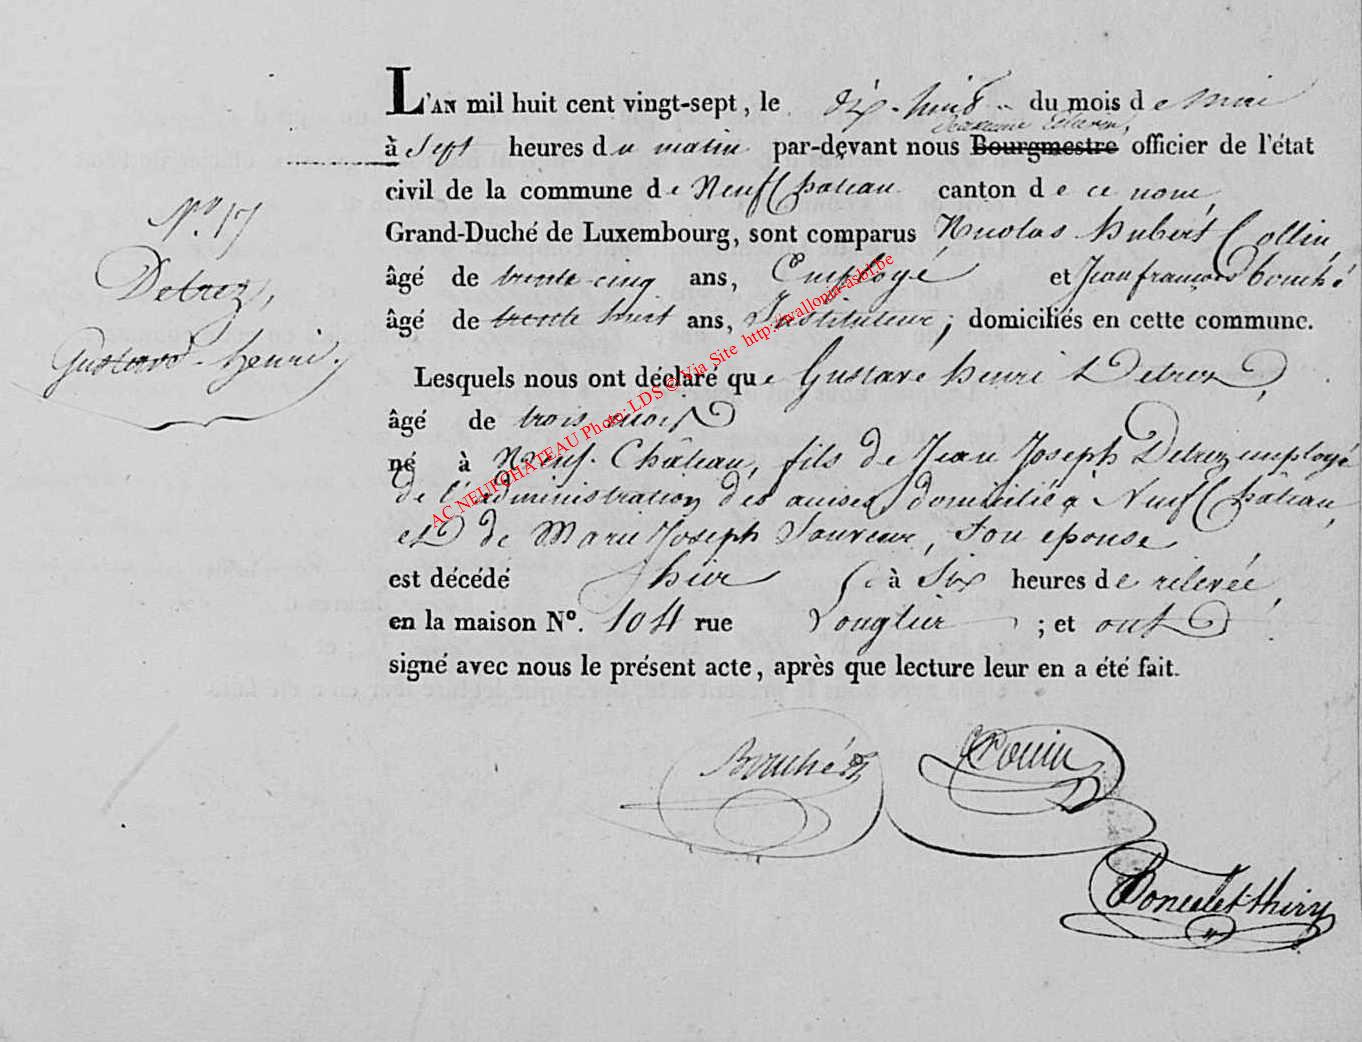 L'AN mil huit cent vingt-sept, le dix-huit du mois de Mai
à Sept heures du matin par-devant nous Bourgmestre officier de l'état
civil de la commune de Neufchateau canton de ce nom,
Grand-Duché de Luxembourg, sont comparus Nicolas hubert Collin,
âgé de trente-cinq ans, Employé et Jean françois bouché
âgé de trente huit ans, Instituteur; domiciliés en cette commune.
N° 17
Detrez,
Gustave-henri.
Lesquels nous ont déclaré que Gustave henri Detrez,
âgé de trois mois
né à Neuf-Château, fils de Jean Joseph Detrez employé
de l'administration des accises domicilié à Neufchâteau,
et de Marie Joseph Sauveur, son épouse
est décédé hier à Six heures de relevée,
en la maison N°. 104 rue Longlier; et ont
signé avec nous le présent acte, après que lecture leur en a été fait.
Bouché
Collin
AC NEUFCHATEAU Photo: LDS © Via Site http://wallonia-asbl.be